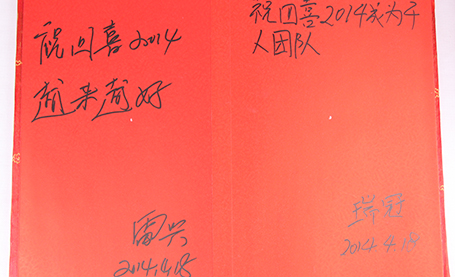 祝回喜2014
越来越好
雷兴
2014.4.18
祝回喜2014成为千
人团队
瑞冠
2014.4.18